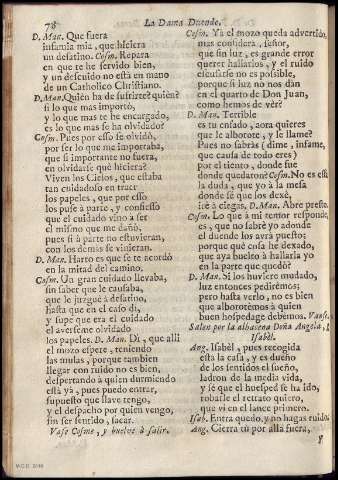 78
La Dama Duende.
D. Man. Que fuera
infamia mia, que hiciera
un desatino. Cosm. Repara
en que te he servido bien,
y un descuido no està en mano
de un Catholico Christiano.
D. Man. Quièn ha de sufrirte? quièn?
si lo que mas importò,
y lo que mas te he encargado,
es lo que mas se ha olvidado?
Cosm. Pues por esso se olvidò,
por ser lo que me importaba,
que si importante no fuera,
en olvidarse què hiciera?
Viven los Cielos, que estaba
tan cuidadoso en traer
los papeles, que por esso
los puse à parte, y confiesso
que el cuidado vino à ser
el mismo que me dañò,
pues si à parte no estuvieran,
con los demàs se vinieran.
D. Man. Harto es que se te acordò
en la mitad del camino.
Cosm. Un gran cuidado llevaba,
sin saber que le causaba,
que le juzguè à desatino,
hasta que en el caso dì,
y supe que era el cuidado
el averseme olvidado
los papeles. D. Man. Dì, que allì
el mozo espere, teniendo
las mulas, porque tambien
llegar con ruido no es bien,
despertando à quien durmiendo
està yà, pues puedo entrar,
supuesto que llave tengo,
y el despacho por quien vengo,
sin ser sentido, sacar.
Vase Cosme, y buelve à salir.
Cosm. Yà el mozo queda advertido,
mas considera, señor,
que sin luz, es grande error
querer hallarlos, y el ruido
escusarse no es possible,
porque si luz no nos dàn
en el quarto de Don Juan,
como hemos de vèr?
D. Man. Terrible
es tu enfado, aora quieres
que le alborote, y le llame?
Pues no sabràs (dime, infame,
que causa de todo eres)
por el tiento, donde fue
donde quedaron? Cosm. No es essa
la duda, que yo à la mesa
donde sè que los dexè,
irè à ciegas. D. Man. Abre presto.
Cosm. Lo que à mi temor responde,
es, que no sabrè yo adonde
el duende los avrà puesto;
porque què cosa he dexado,
que aya buelto à hallarla yo
en la parte que quedò?
D. Man. Si los huviere mudado,
luz entonces pedirèmos;
pero hasta verlo, no es bien
que alborotèmos à quien
buen hospedage debèmos. Vanse.
Salen por la alhacena Doña Angela, è
Isabèl.
Ang. Isabèl, pues recogida
està la casa, y es dueño
de los sentidos el sueño,
ladron de la media vida,
y sè que el huesped se ha ido,
robarle el retrato quiero,
que vi en el lance primero.
Isab. Entra quedo, y no hagas ruido.
Ang. Cierra tù por allà fuera,
y